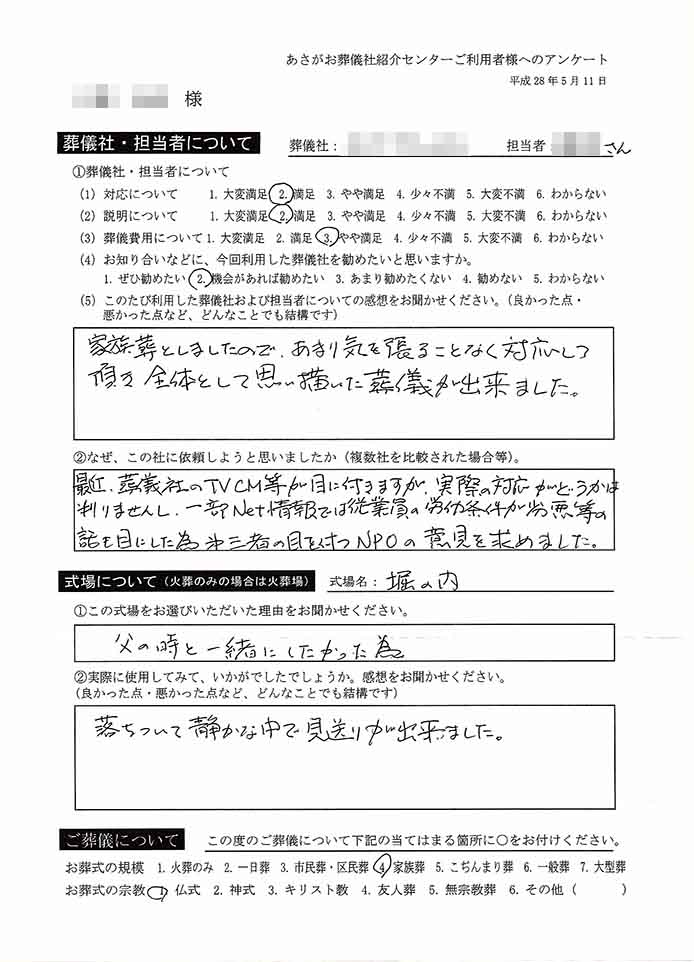 あさがお葬儀社紹介センターご利用者様へのアンケート
平成28年5月11日
様
葬儀社・担当者について 葬儀社: 担当者 さん
①葬儀社・担当者について
(1) 対応について 1. 大変満足 2. 満足 3. やや満足 4. 少々不満 5. 大変不満 6. わからない
(2) 説明について 1. 大変満足 2. 満足 3. やや満足 4. 少々不満 5. 大変不満 6. わからない
(3) 葬儀費用について 1. 大変満足 2. 満足 3. やや満足 4. 少々不満 5. 大変不満 6. わからない
(4) お知り合いなどに、今回利用した葬儀社を勧めたいと思いますか。
1. ぜひ勧めたい 2. 機会があれば勧めたい 3. あまり勧めたくない 4. 勧めない 5. わからない
(5) このたび利用した葬儀社および担当者についての感想をお聞かせください。(良かった点・
悪かった点など、どんなことでも結構です)
家族葬としましたので、あまり気を張ることなく対応して
頂き全体として思い描いた葬儀が出来ました。
②なぜ、この社に依頼しようと思いましたか(複数社を比較された場合等)。
最近、葬義社のTVCM等が目に付きますが、実際の対応がどうかは
判りませんし、一部Net情報では従業員の労働条件が劣悪等の
話を目にした為 第三者の目を持つNPOの意見を求めました。
式場について(火葬のみの場合は火葬場) 式場名: 堀ノ内
①この式場をお選びいただいた理由をお聞かせください。
父の時と一緒にしたかった為
②実際に使用してみて、いかがでしたでしょうか。感想をお聞かせください。
(良かった点・悪かった点など、どんなことでも結構です)
落ちついて静かな中で見送りが出来ました。
ご葬儀について この度のご葬儀について下記の当てはまる箇所に○をお付けください。
お葬式の規模 1. 火葬のみ 2. 一日葬 3. 市民葬・区民葬 4. 家族葬 5. こぢんまり葬 6. 一般葬 7. 大型葬
お葬式の宗教 1. 仏式 2. 神式 3. キリスト教 4. 友人葬 5. 無宗教葬 6. その他 ( )